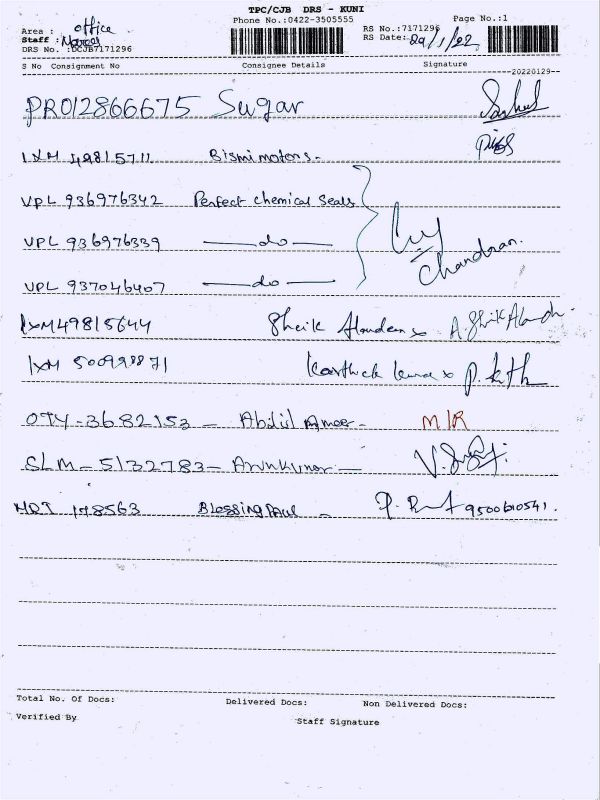 TPC/CJB DRS - KUNI
Phone No.:0422-3505555
Page No.:1
Area : office
Staff :
DRS No. :DCJB7171296
RS No.:7171296
RS Date: 29/1/22
S No Consignment No Consignee Details Signature
20220129
PRO12866675 Sugar
IXM 49815711 Bismi motors -
VPL 936976342 Perfect chemical Seals
VPL 936976339 — do —
VPL 937046407 — do —
Chandran.
IXM49815644 Sheik
IXM 50099871
OTY-3682153 - Abdul Ameer - M/R
SLM - 5132783 - Arunkumar -
MDI 178563 Blessing Paul - 9500610541.
Total No. Of Docs: Delivered Docs: Non Delivered Docs:
Verified By Staff Signature